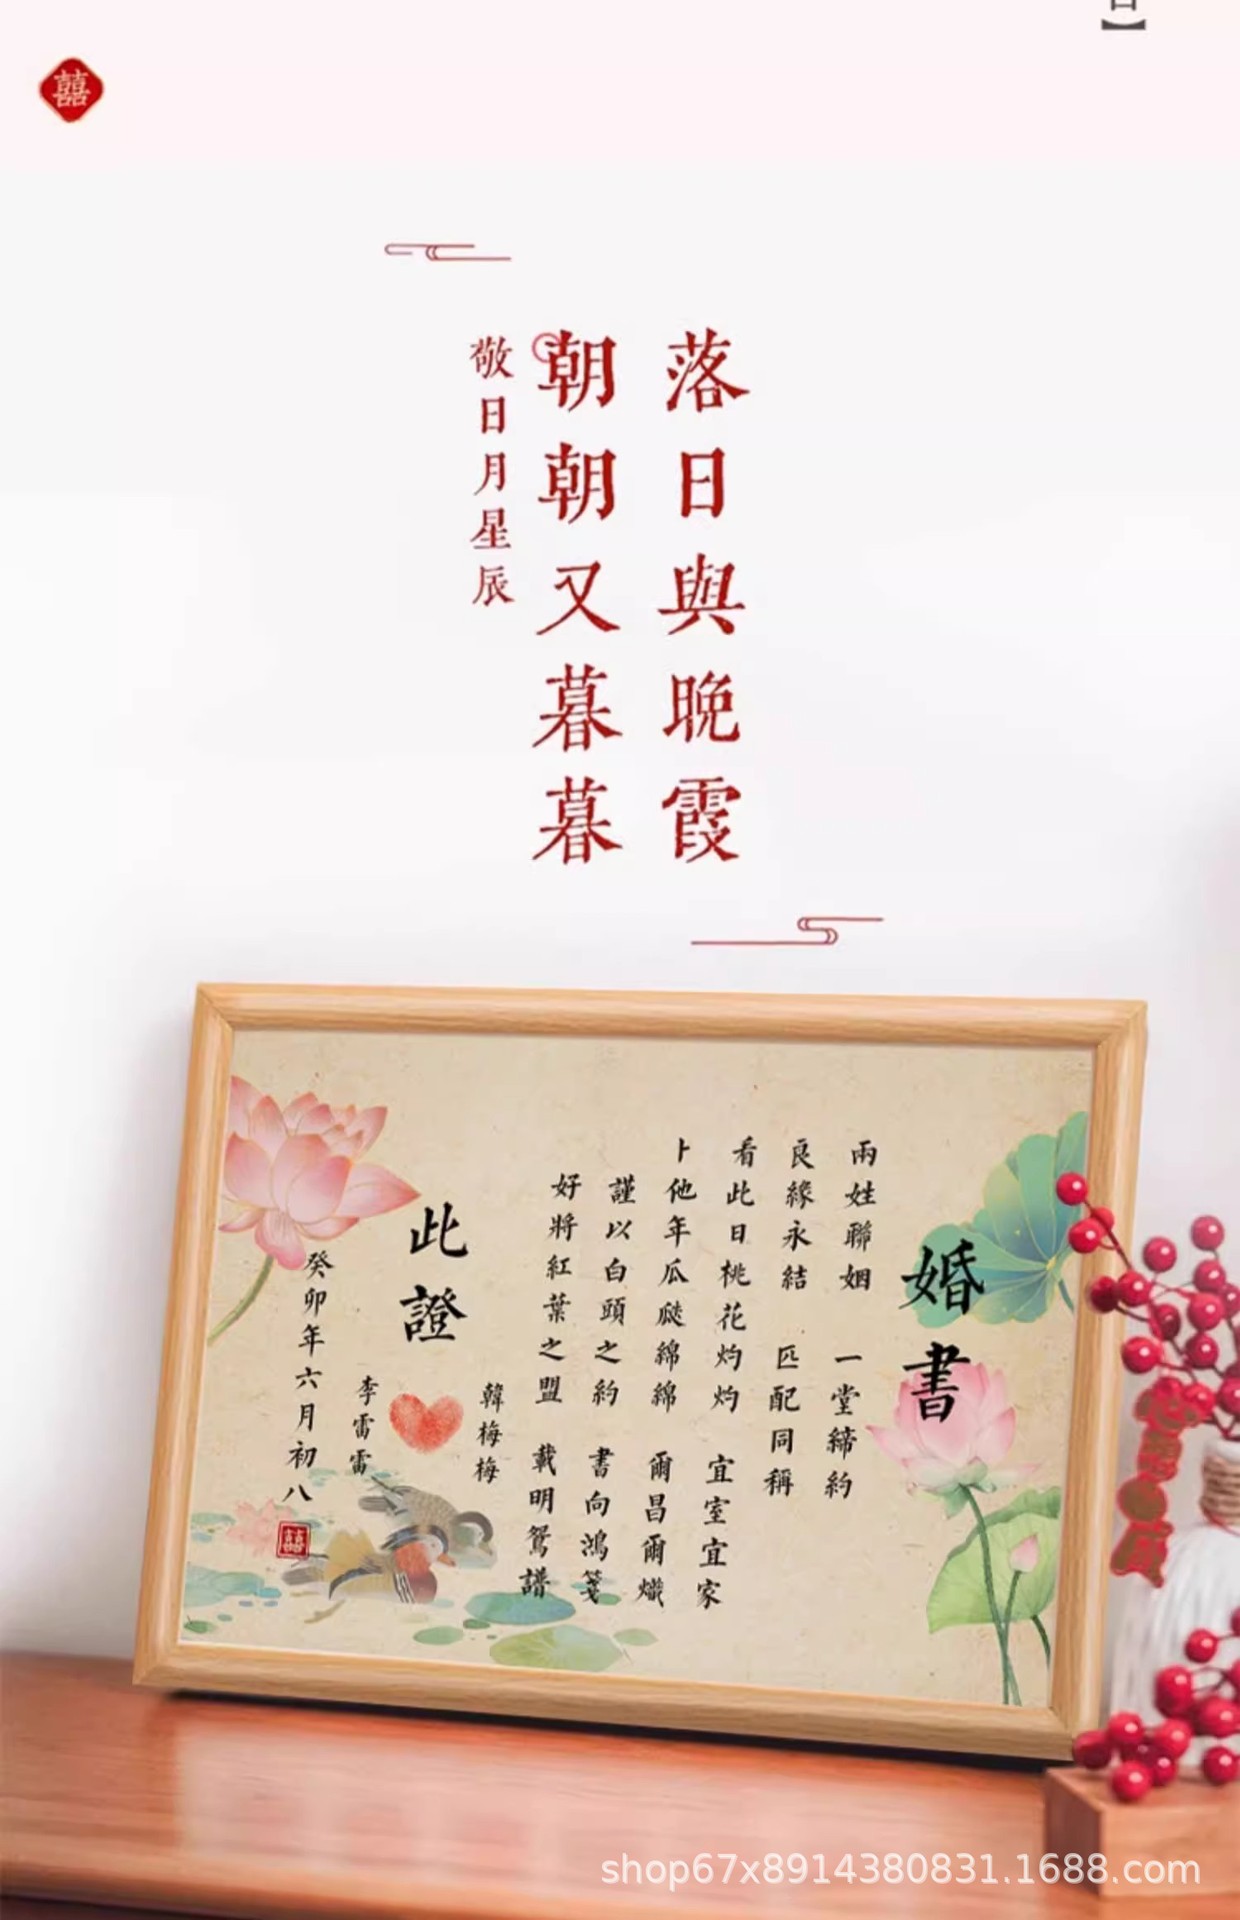 囍
落日與晚霞
朝朝又暮暮
敬日月星辰
婚書
兩姓聯姻 一堂締約
良緣永結 匹配同稱
看此日桃花灼灼 宜室宜家
卜他年瓜瓞綿綿 爾昌爾熾
謹以白頭之約 書向鴻箋
好將紅葉之盟 載明鴛譜
此證
韓梅梅
李雷雷
癸卯年六月初八
囍
shop67x8914380831.1688.com